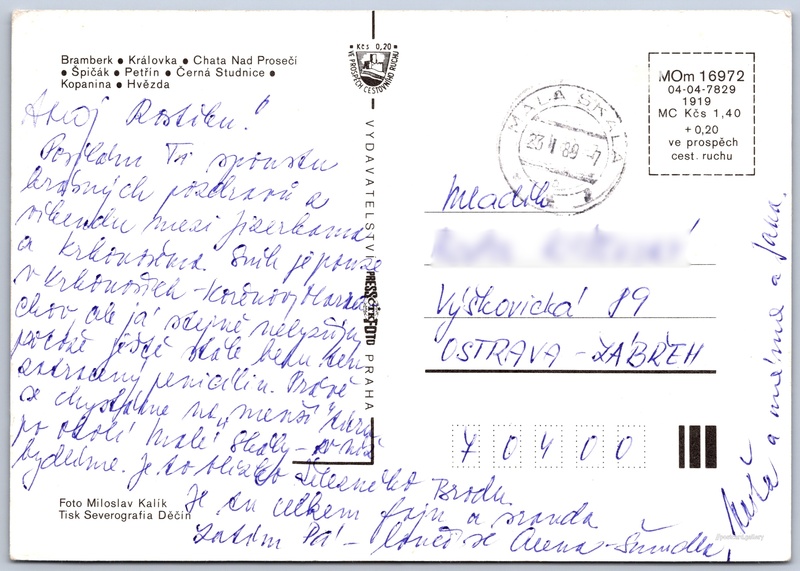 Bramberk ● Královka ● Chata Nad Prosečí
● Špičák ● Petřín ● Černá Studnice ●
Kopanina ● Hvězda
Kčs 0,20
VE PROSPĚCH CESTOVNÍHO RUCHU
MOm 16972
04-04-7829
1919
MC Kčs 1,40
+ 0,20
ve prospěch
cest. ruchu
MALÁ SKÁLA
23 II 89 -7
Ahoj Rostíku!
Posílám Ti spoustu
krásných pozdravů z
víkendu mezi Jizerkama
a Krkonošma. Sníh je pouze
v Krkonoších - Kořenov, Harra-
chov ale já stejně nelyžuju
protože ještě stále beru ten
zatracený penicilin. Právě
se chystáme na „menší"
po okolí Malé Skály - v níž
bydlíme. Je to blízko Železného Brodu.
Je tu celkem fajn a sranda
Zatím Pá - loučí se Alena - Šmudla,
a Jana.
Mladík
Výškovická 89
OSTRAVA - ZÁBŘEH
70400
VYDAVATELSTVÍ PRESSFOTO PRAHA
Foto Miloslav Kalík
Tisk Severografia Děčín